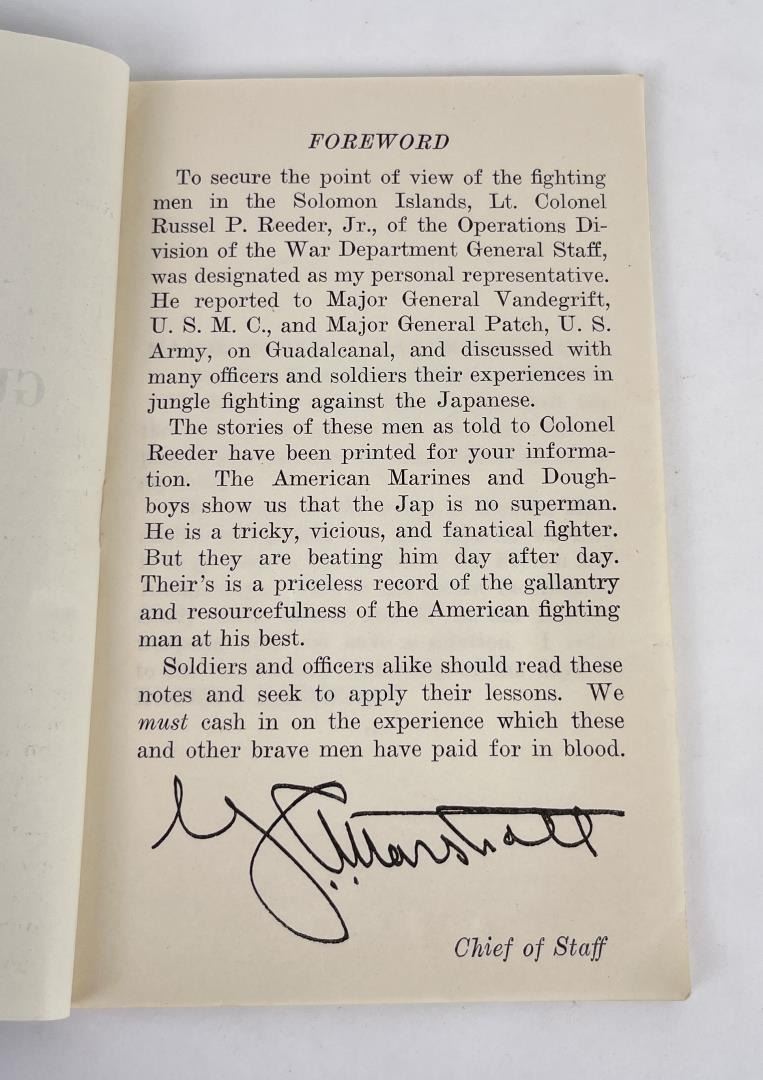 FOREWORD
To secure the point of view of the fighting
men in the Solomon Islands, Lt. Colonel
Russel P. Reeder, Jr., of the Operations Di-
vision of the War Department General Staff,
was designated as my personal representative.
He reported to Major General Vandegrift,
U. S. M. C., and Major General Patch, U. S.
Army, on Guadalcanal, and discussed with
many officers and soldiers their experiences in
jungle fighting against the Japanese.
The stories of these men as told to Colonel
Reeder have been printed for your informa-
tion. The American Marines and Dough-
boys show us that the Jap is no superman.
He is a tricky, vicious, and fanatical fighter.
But they are beating him day after day.
Their's is a priceless record of the gallantry
and resourcefulness of the American fighting
man at his best.
Soldiers and officers alike should read these
notes and seek to apply their lessons. We
must cash in on the experience which these
and other brave men have paid for in blood.
G. C. Marshall
Chief of Staff